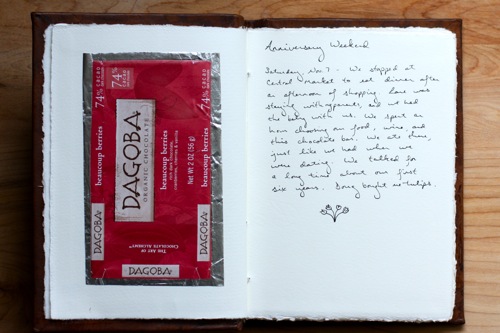 74% CACAO
74% CACAO
74% CACAO
beaucoup berries
DAGOBA
ORGANIC CHOCOLATE
beaucoup berries
rich dark chocolate,
cranberries, cherries & vanilla
Net Wt 2 oz (56 g)
beaucoup berries
DAGOBA
DAGOBA
THE ART OF
CHOCOLATE ALCHEMY™
DAGOBA
Anniversary Weekend
Saturday, Nov. 7 - We stopped at
Central Market to eat dinner after
an afternoon of shopping. Lane was
staying with my parents, and we had
the baby with us. We spent an
hour choosing our food, wine, and
this chocolate bar. We ate there,
just like we had when we
were dating. We talked for
a long time about our first
six years. Doug bought me tulips.